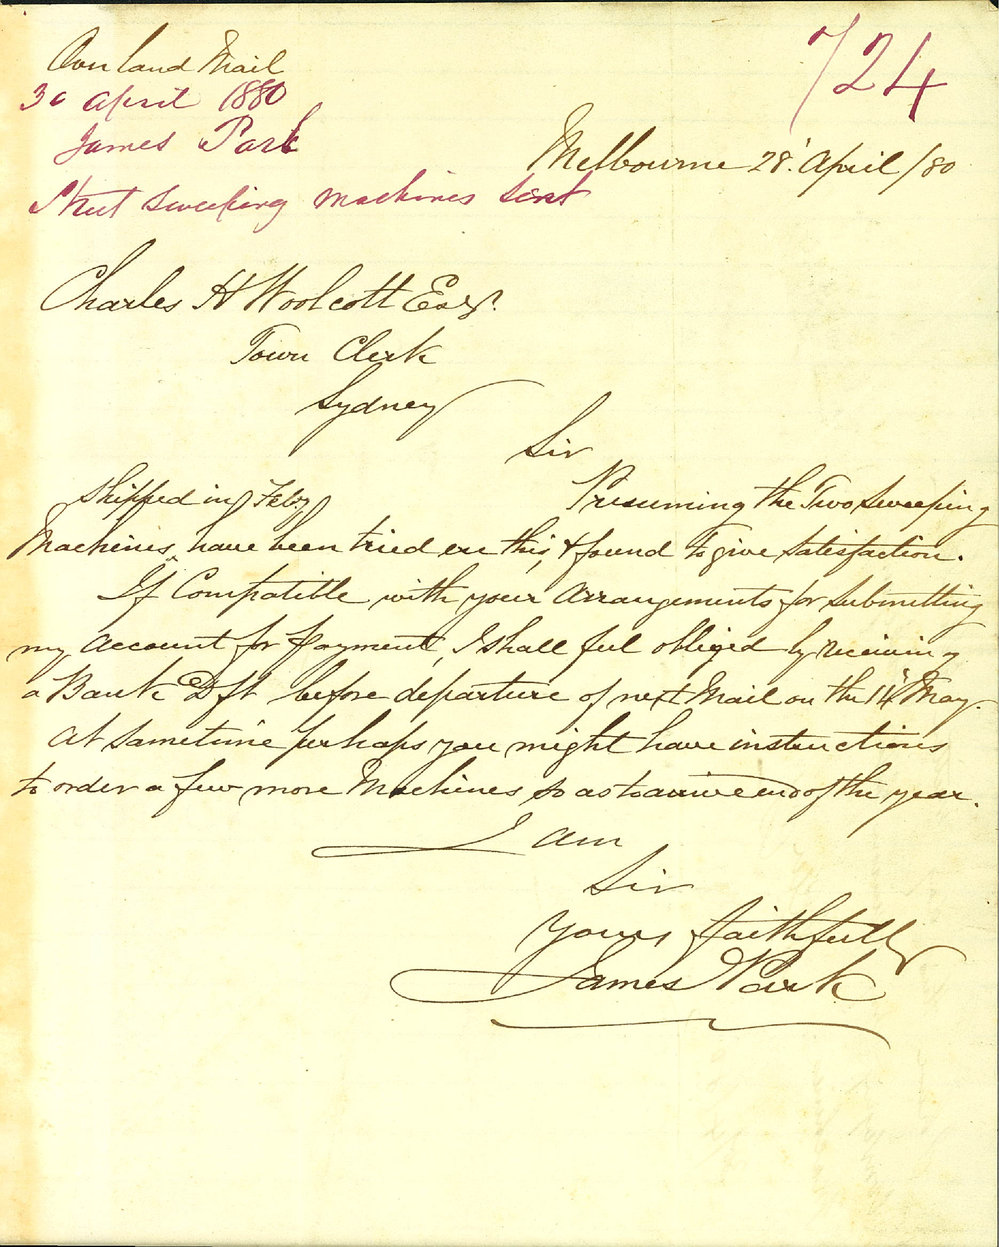 Overland Mail
724
30 April 1880
James Park
Melbourne 28' April /80
Street sweeping machines sent
Charles H Woolcott Esqr.
Town Clerk
Sydney
Sir
shipped in Feby
Presuming the Two Sweeping
Machines, have been tried ere this, & found to give satisfaction.
If Compatible with your Arrangements for submitting
my Account for payment, I shall feel obliged by receiving
a Bank Dft before departure of next Mail on the 14' May.
At sametime perhaps you might have instructions
to order a few more Machines so as to arrive end of the year.
I am
Sir
yours faithfully
James Park